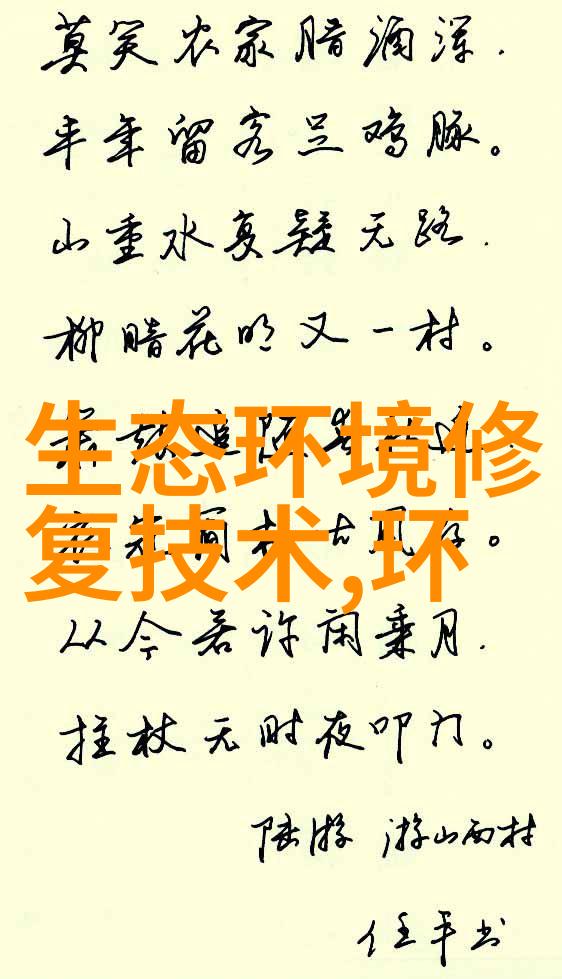 莫笑农家腊酒浑.
丰年留客足鸡豚。
山重水复疑无路.
柳暗花明又一村。
生态环境修
复技术,环
从今若许闲乘月.
拄杖无时夜叩门。
陆游 游山西村
任平书